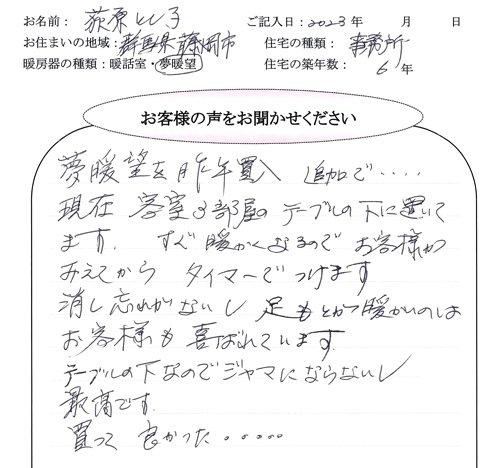 お名前：荻原とし子 ご記入日：2023年　月　日
お住まいの地域：群馬県藤岡市 住宅の種類：事務所
暖房器の種類：暖話室・夢暖望 住宅の築年数：6年
お客様の声をお聞かせください
夢暖望を昨年買入 追加で・・・・・
現在 客室3部屋のテーブルの下に置いて
ます。すぐ暖かくなるので お客様が
みえてから タイマーでつけます
消し忘れがないし 足もとが暖かいのは
お客様も喜ばれています
テーブルの下なのでジャマにならないし
最高です。
買って 良かった・・・・・